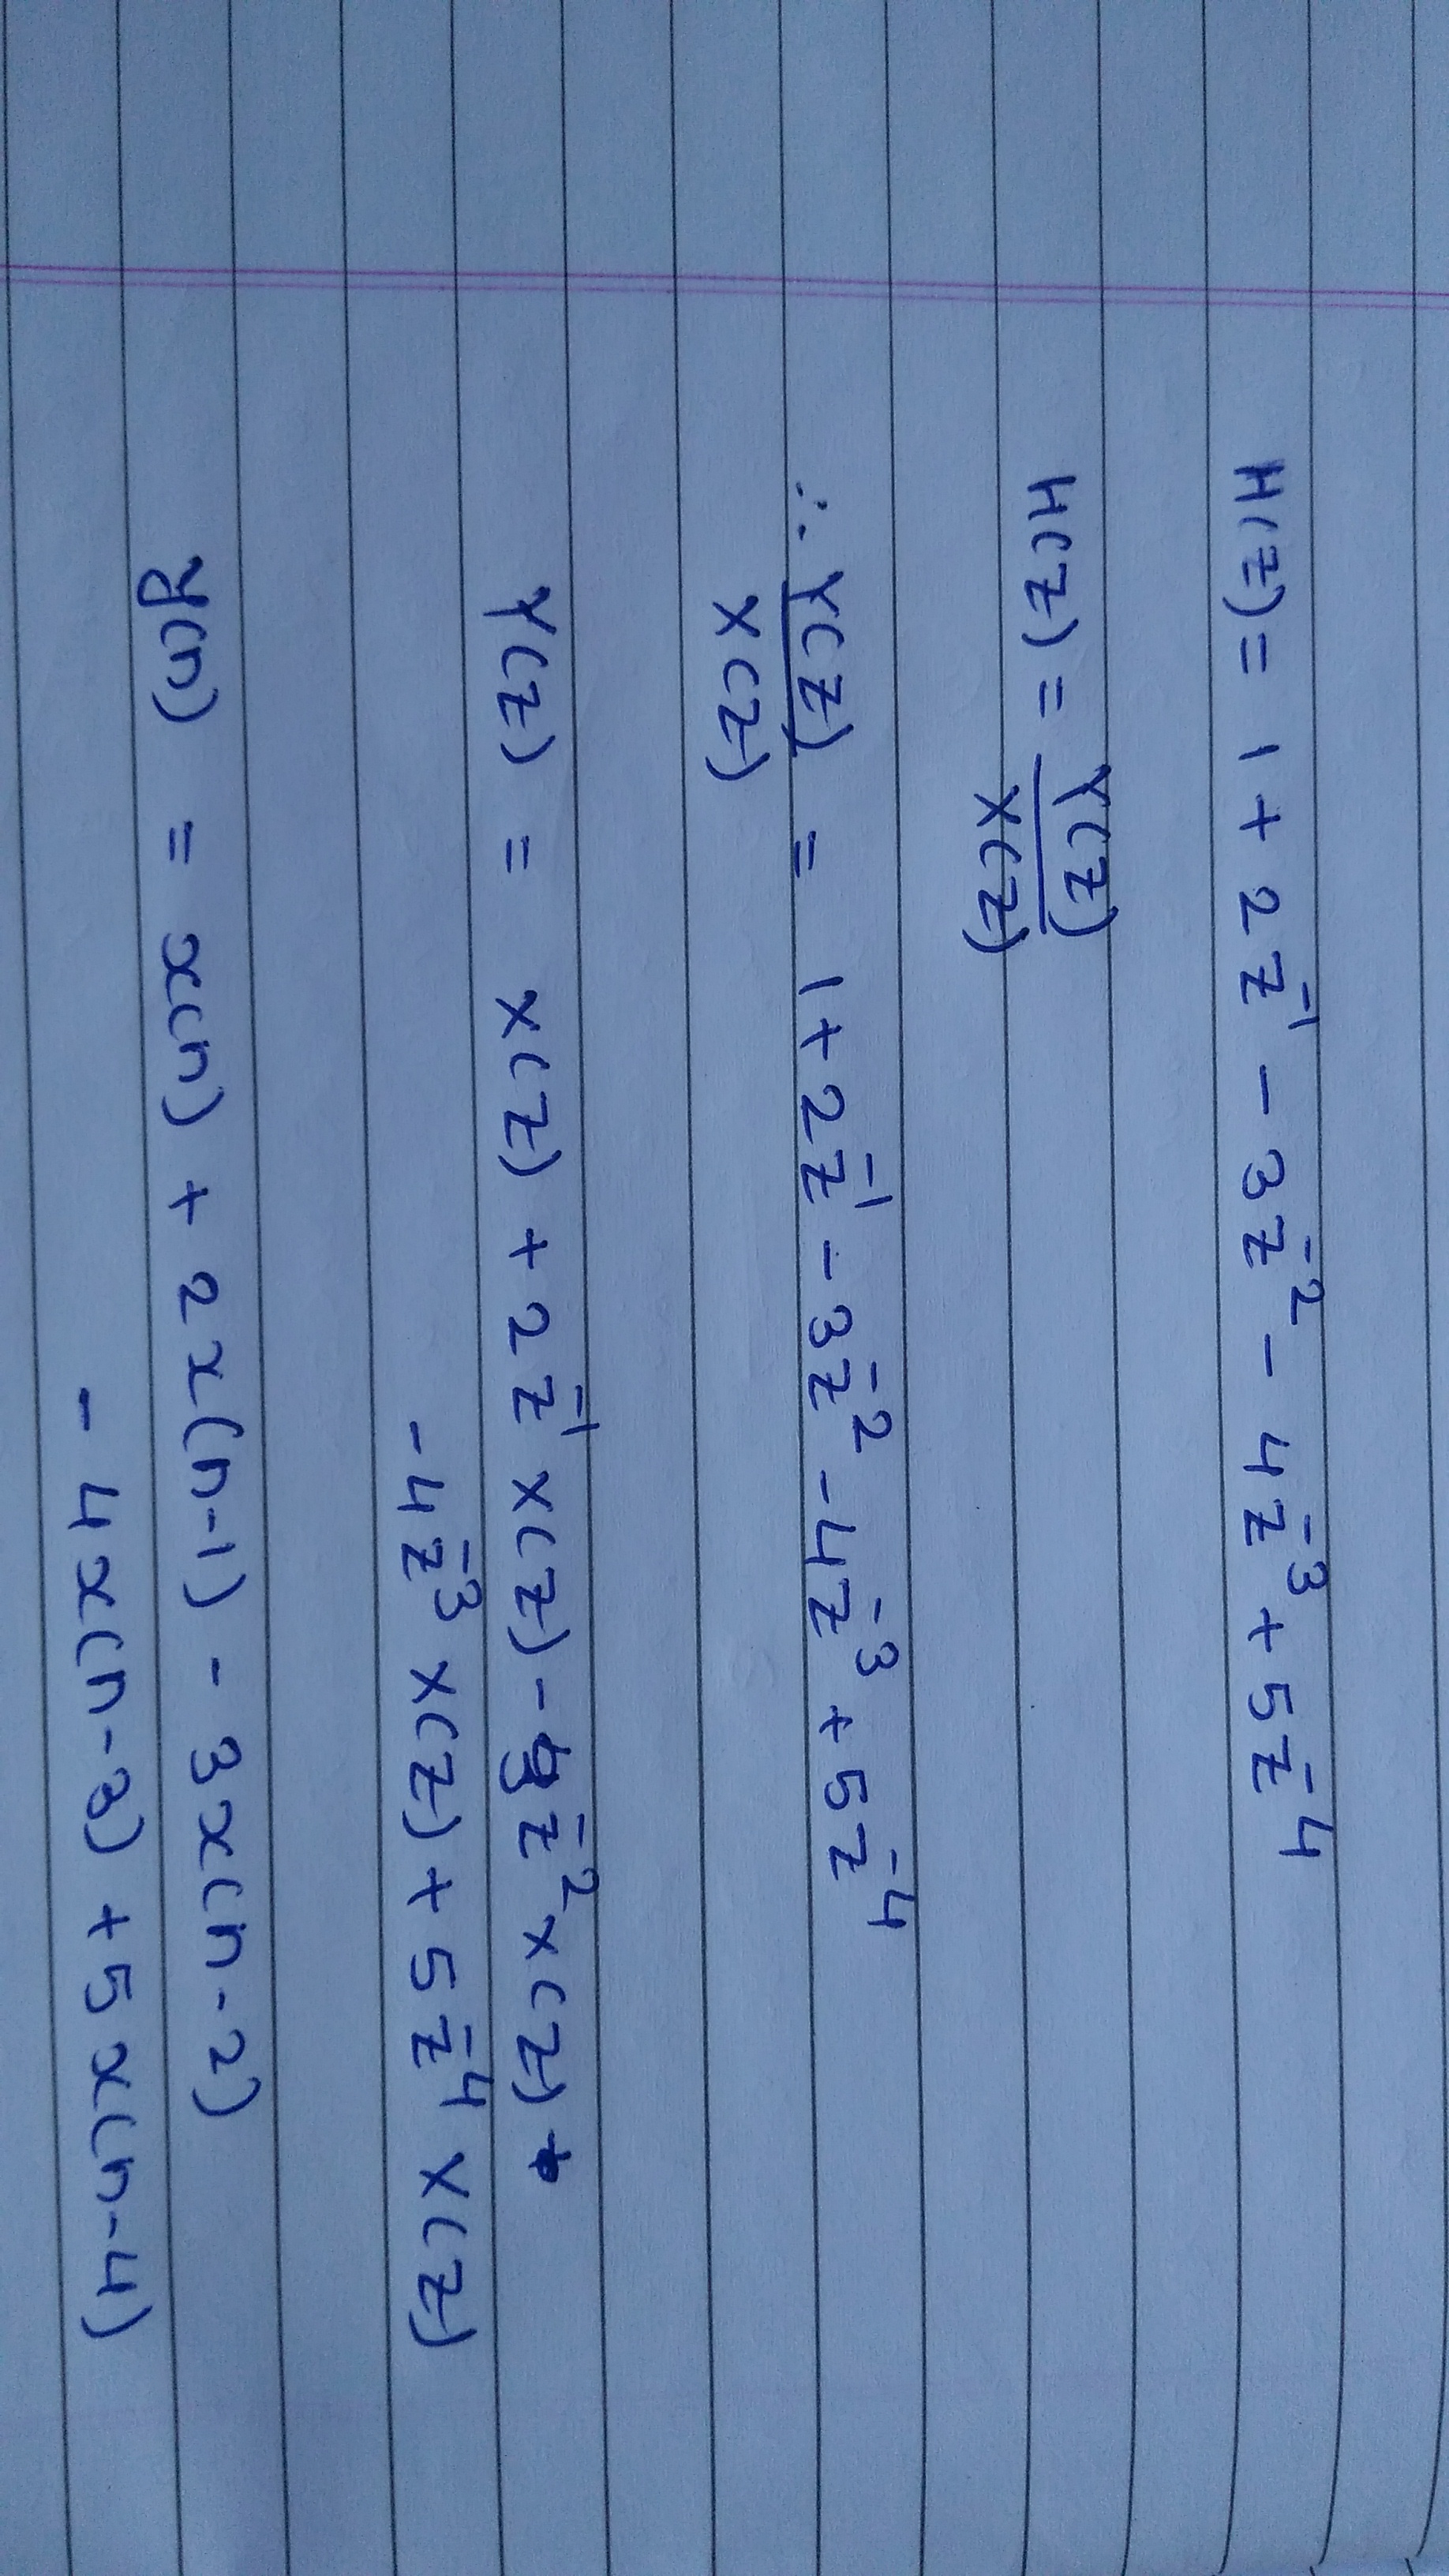 H(Z) = 1 + 2z⁻¹ - 3z⁻² - 4z⁻³ + 5z⁻⁴
H(Z) = Y(Z)
X(Z)
∴ Y(Z) = 1 + 2z⁻¹ - 3z⁻² - 4z⁻³ + 5z⁻⁴
X(Z)
Y(Z) = X(Z) + 2z⁻¹ X(Z) - 3z⁻² X(Z)
- 4z⁻³ X(Z) + 5z⁻⁴ X(Z)
y(n) = x(n) + 2x(n-1) - 3x(n-2)
- 4x(n-3) + 5x(n-4)